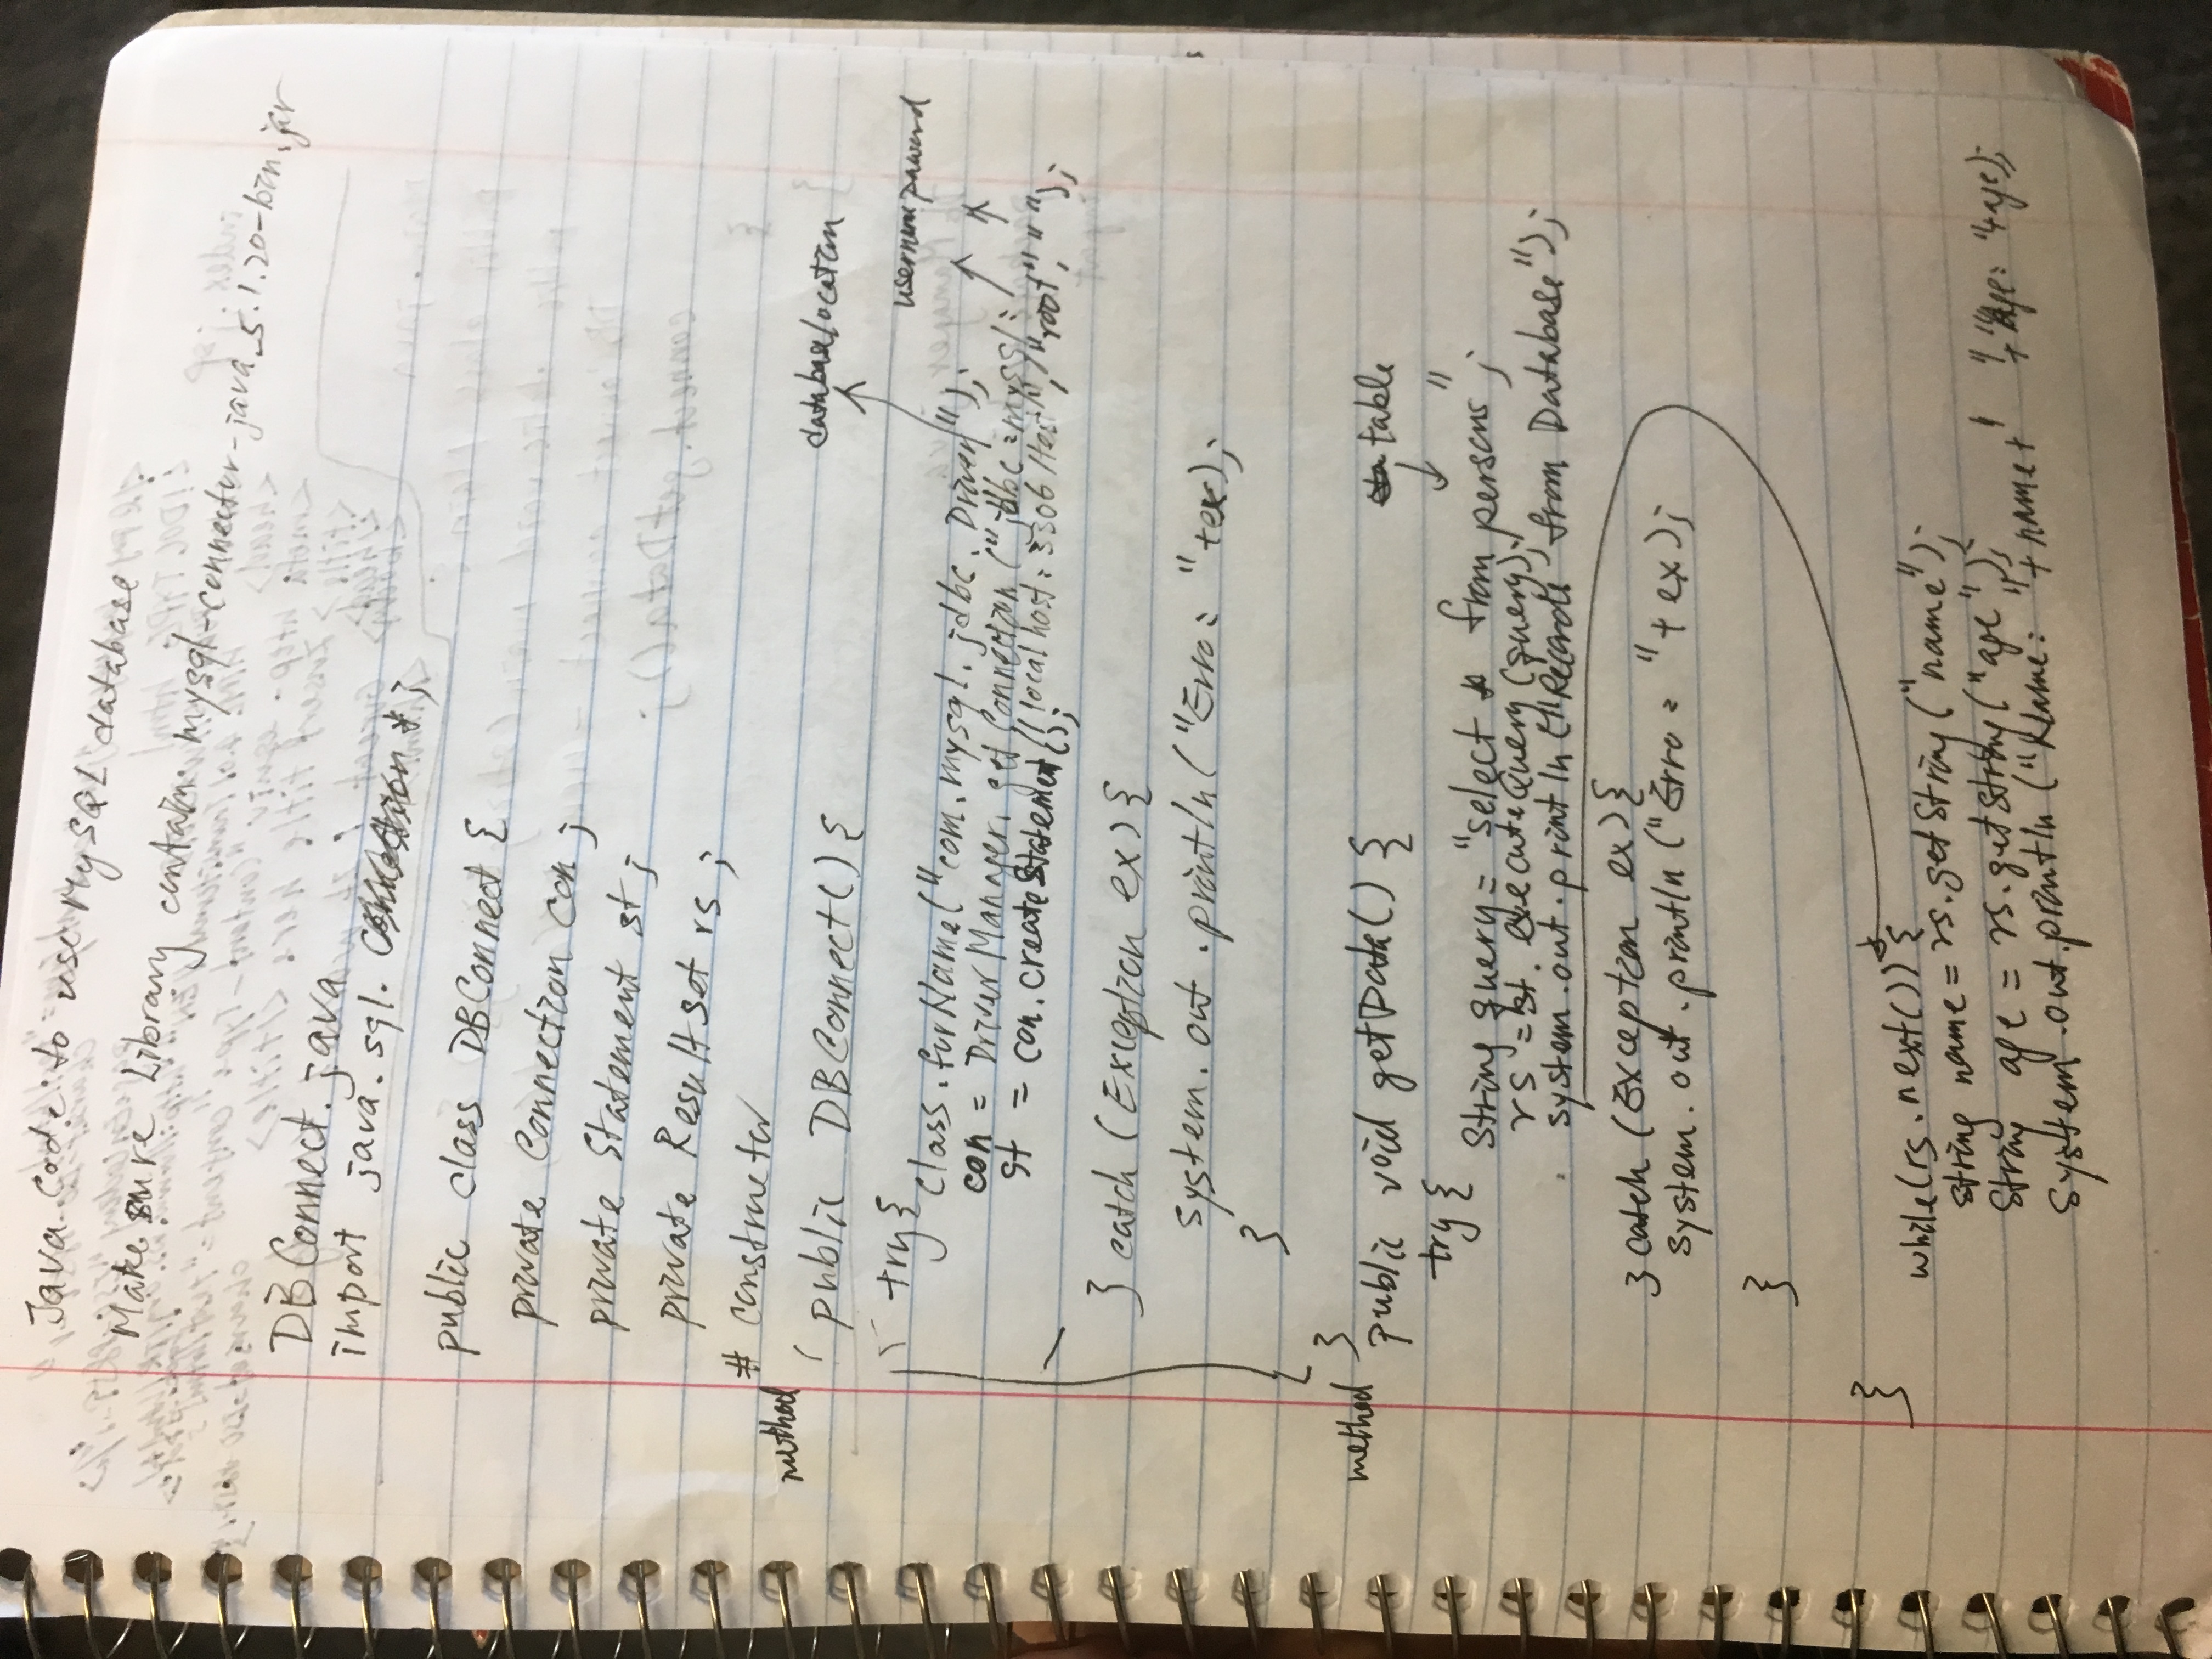 Java Code to use MySQL database
Make sure Library contain mysql-connector-java_5.1.20-bin.jar
DBConnect.java
import java.sql. *;
public class DBConnect {
private Connection con;
private Statement st;
private ResultSet rs;
# constructor
method
public DBConnect(){
database location
try{
username password
Class.forName("com.mysql.jdbc.Driver");
con = DriverManager.getConnection("jdbc:mysql:
//localhost:3306/test", "root", "");
st = con.createStatement();
} catch (Exception ex){
system.out.println("Erro: "+ex);
}
}
method
public void getData() {
table
try{
String query= "select * from persons";
rs = st.executeQuery(query);
system.out.println("Records from Database");
} catch (Exception ex){
system.out.println("Erro: "+ex);
}
}
while(rs.next()){
string name = rs.getString("name");
String age = rs.getString("age");
System.out.println("Name: "+name+" "+"Age: "+age);